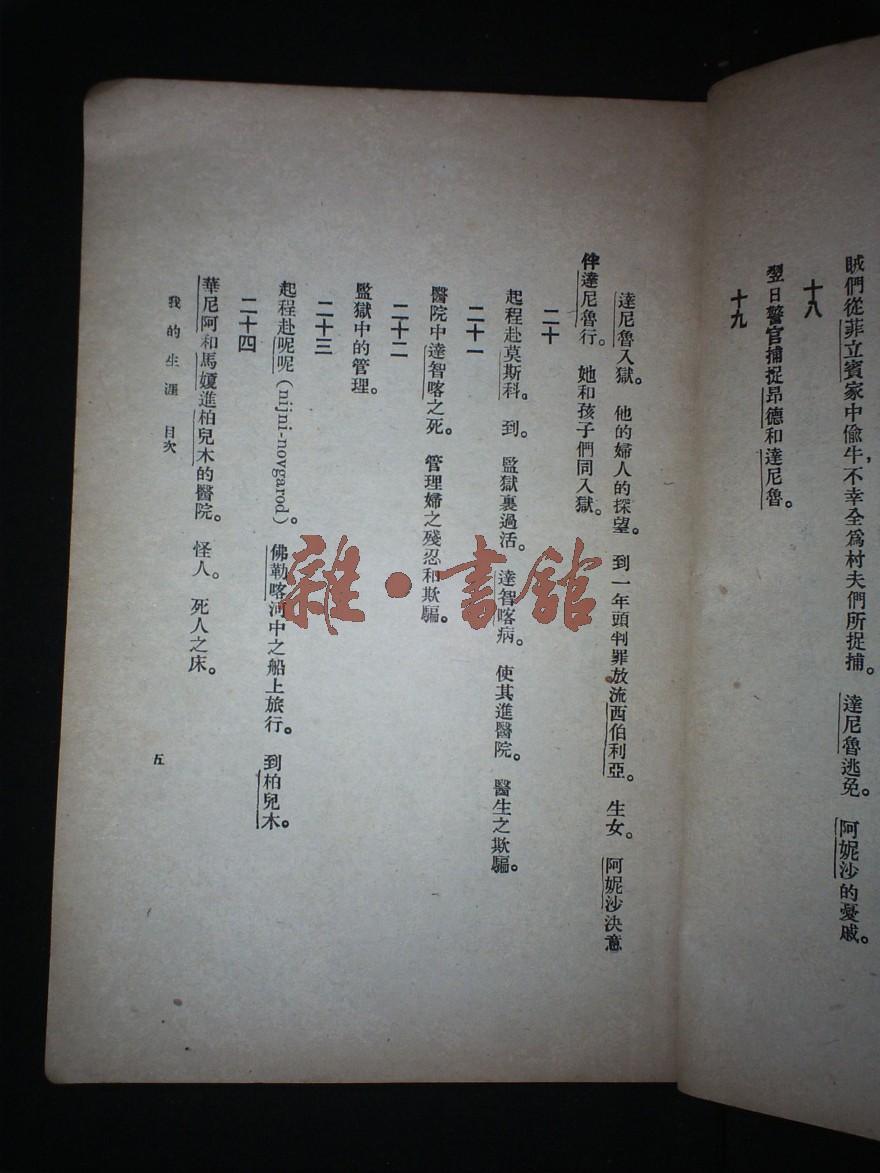 賊們從菲立賓家中偸牛，不幸全爲村夫們所捉捕。　達尼魯逃免。　阿妮沙的憂戚。
十八
翌日警官捕捉昂德和達尼魯。
十九
達尼魯入獄。　他的婦人的探望。　到一年頭判罪放流西伯利亞。　生女。　阿妮沙決意
伴達尼魯行。　她和孩子們同入獄。
二十
起程赴莫斯科。　到。　監獄裏過活。　達智喀病。　使其進醫院。　醫生之欺騙。
二十一
醫院中達智喀之死。　管理婦之殘忍和欺騙。
二十二
監獄中的管理。
二十三
起程赴呢呢(nijni-novgarod)。　佛勒喀河中之船上旅行。　到柏兒木。
二十四
華尼阿和馬嫒進柏兒木的醫院。　怪人。　死人之床。
我的生涯　目次
五
雜·書館